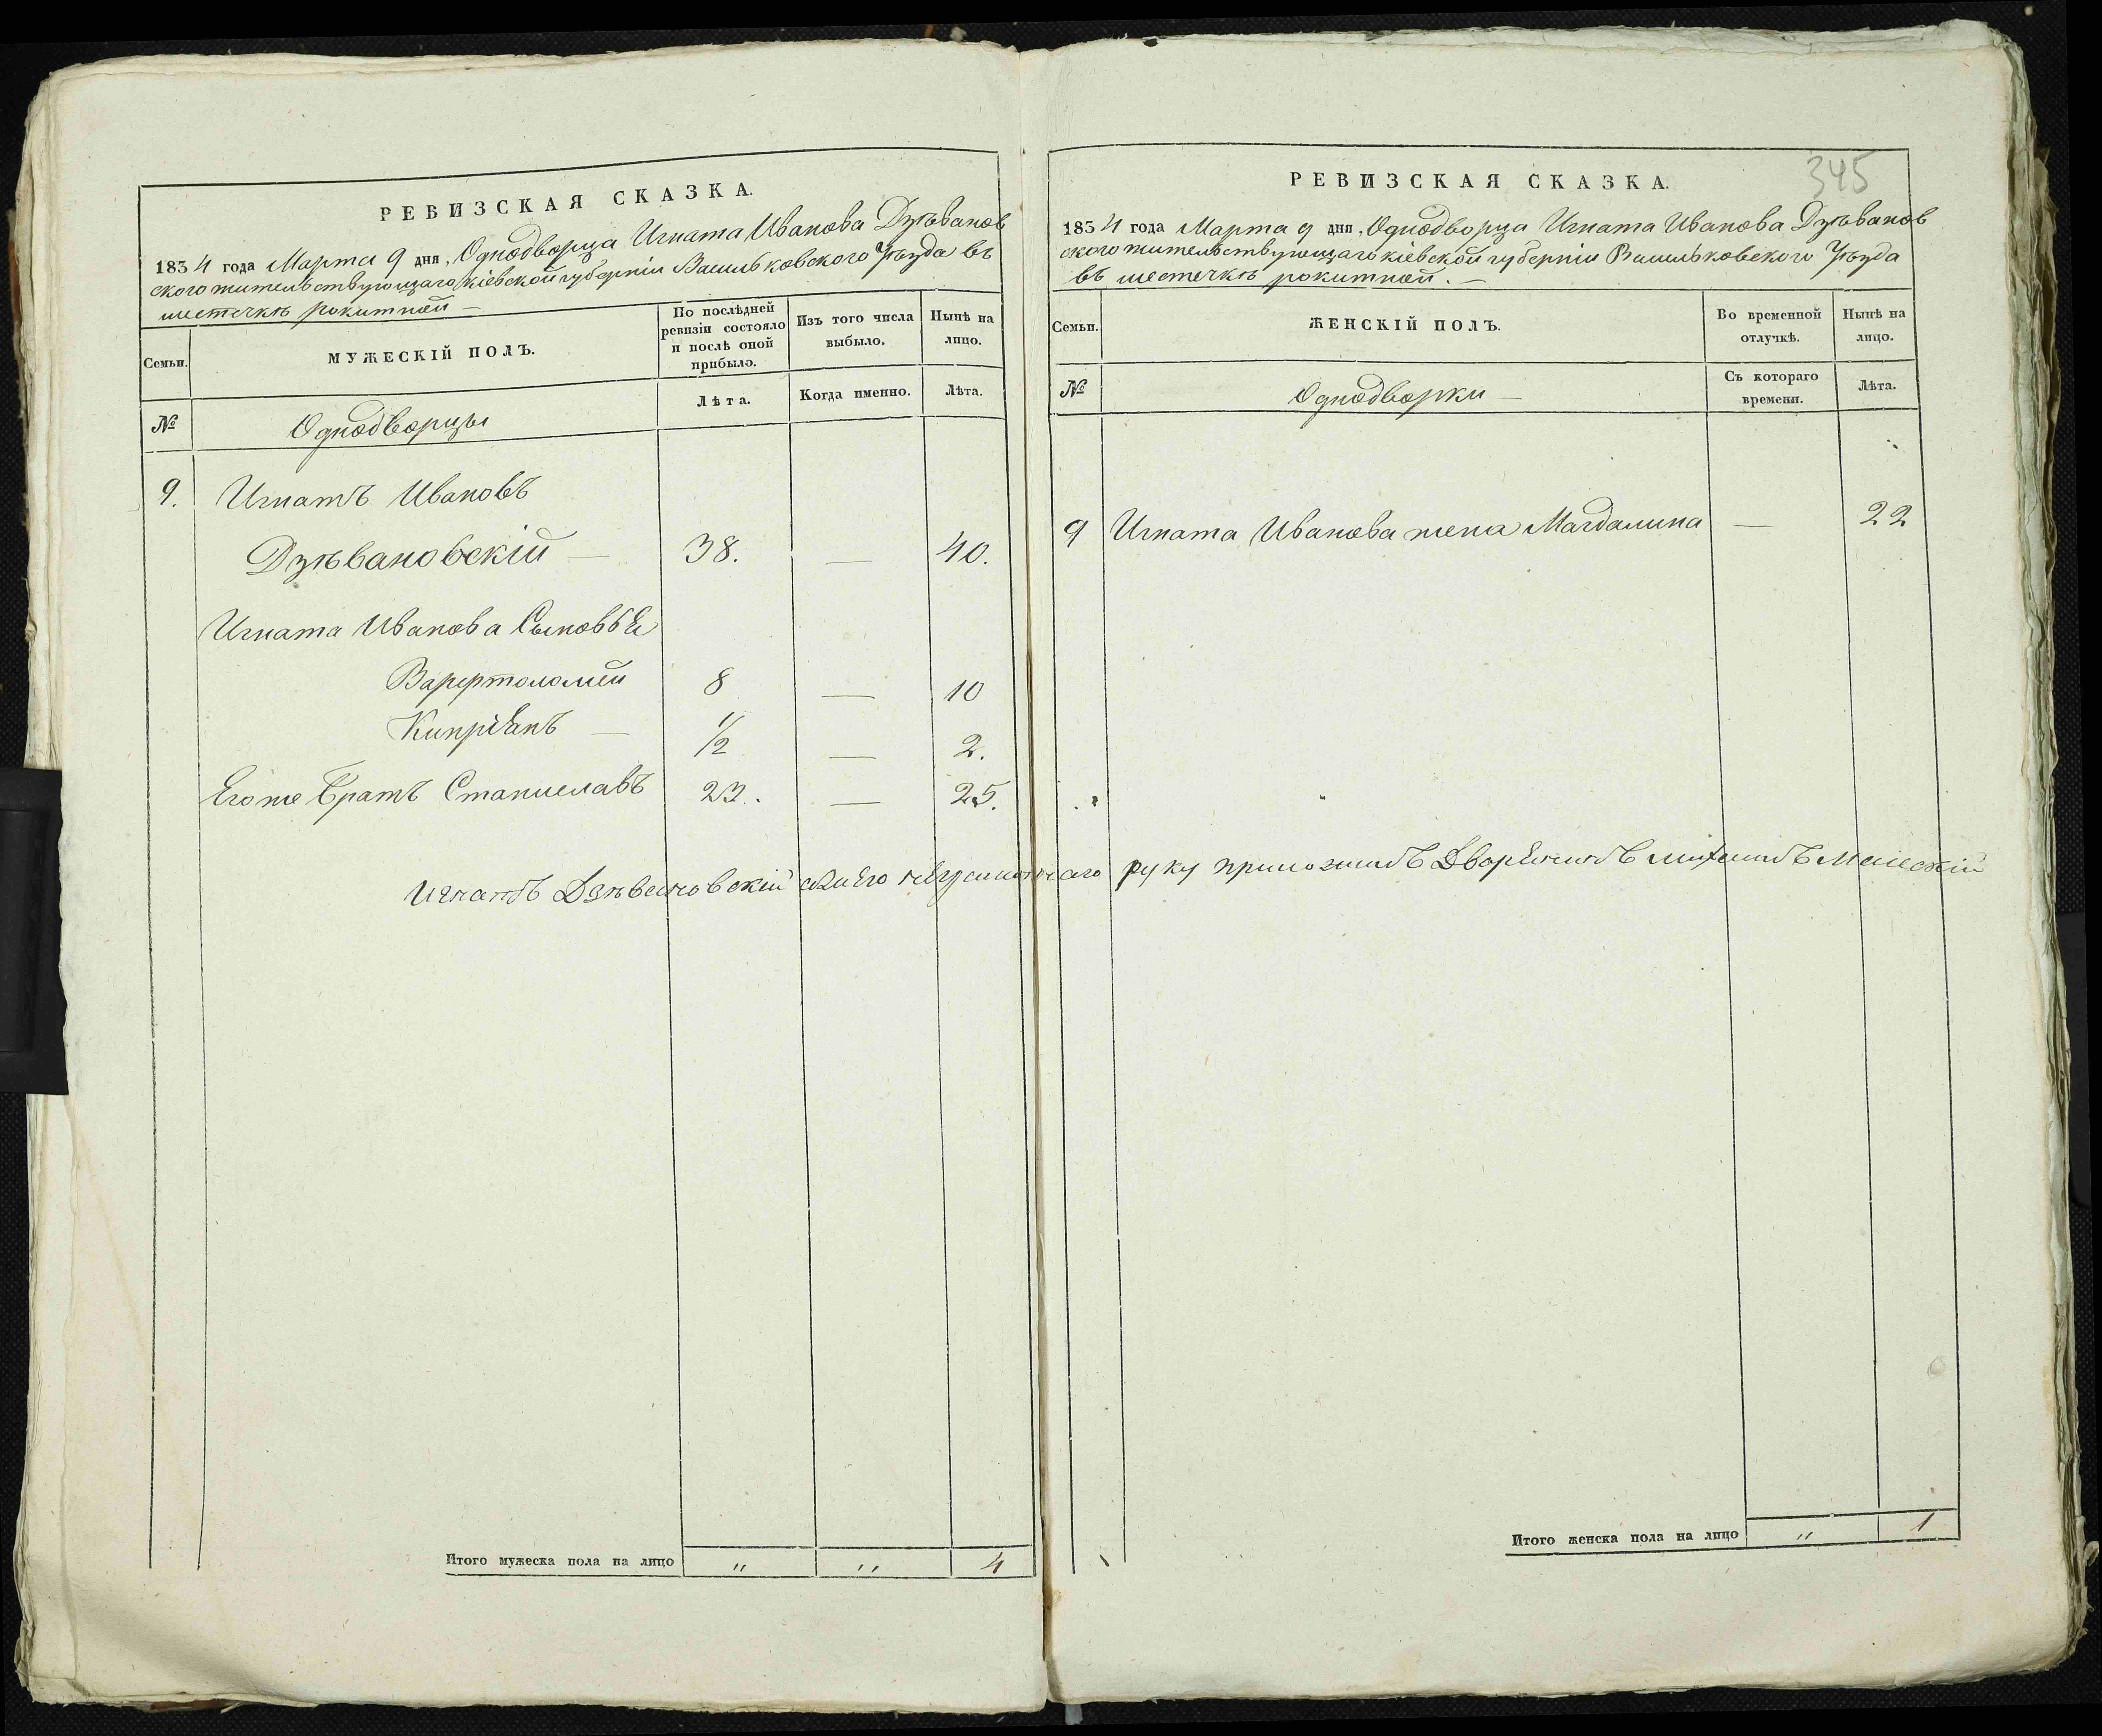 РЕВИЗСКАЯ СКАЗКА.
1834 года Марта 9 дня, Однодворца Игната Иванова Дзѣванов
ского жительствующаго кіевской губерніи Васильковского Уѣзда въ
местечкѣ рокитной —
Семьи.
МУЖЕСКІЙ ПОЛЪ.
По послѣдней
ревизіи состояло
и послѣ оной
прибыло.
Изъ того числа
выбыло.
Нынѣ на
лицо.
№
Однодворцы
Лѣта.
Когда именно.
Лѣта.
9. Игнатъ Ивановъ
Дзѣвановскій — 38. — 40.
Игната Иванова Сыновья
Варфтоломей 8 — 10
Кипріянъ — 1/2 — 2.
Егоже Братъ Станиславъ 23. — 25.
Итого мужеска пола на лицо " " 4
345
РЕВИЗСКАЯ СКАЗКА.
1834 года Марта 9 дня, Однодворца Игната Иванова Дзѣванов
ского жительствующаго кіевской губерніи Васильковского Уѣзда
въ местечкѣ рокитной. —
Семьи.
ЖЕНСКІЙ ПОЛЪ.
Во временной
отлучкѣ.
Нынѣ на
лицо.
№
Однодворки —
Съ котораго
времени.
Лѣта.
9 Игната Иванова жена Магдалина — 22
Игнатъ Дзѣвановскій руку приложилъ Дворянинъ
Итого женска пола на лицо " 1